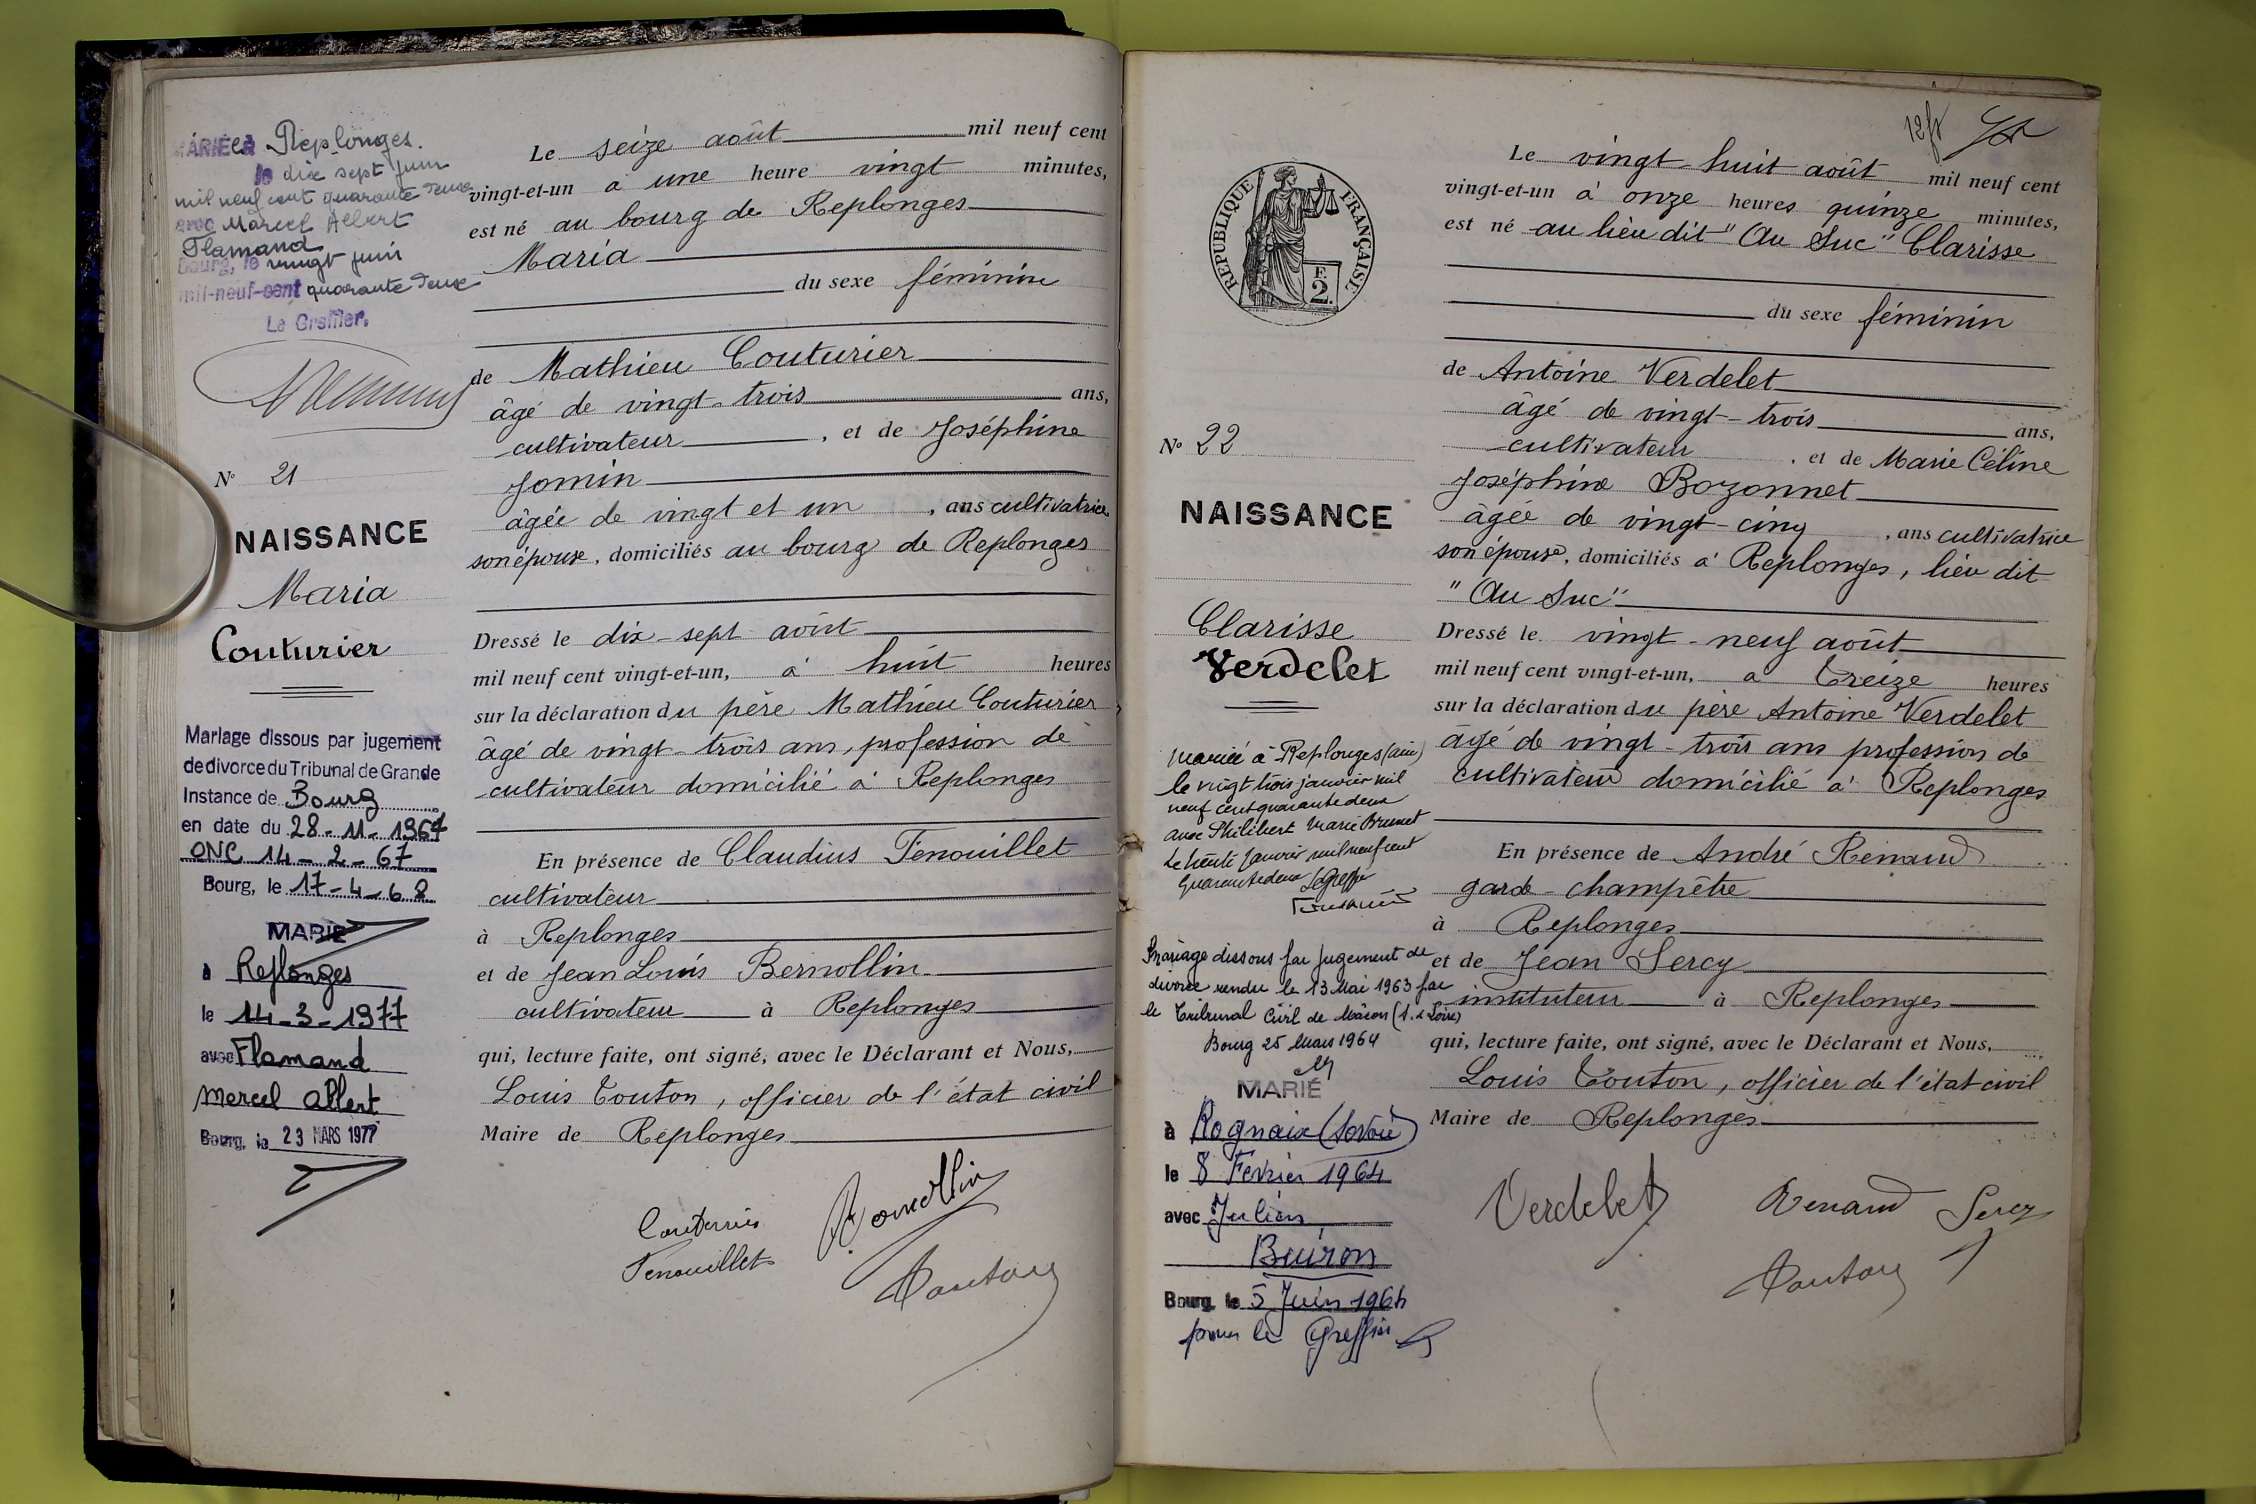 MARIÉE à Replonges.
le dix sept juin
mil neuf cent quarante deux
avec Marcel Albert
Flamand
Bourg, le vingt juin
mil-neuf-cent quarante deux
Le Greffier,
N° 21
NAISSANCE
Maria
Couturier
Mariage dissous par jugement
de divorce du Tribunal de Grande
Instance de Bourg
en date du 28-11-1967
ONC 14-2-67
Bourg, le 17-4-68
MARIE
à Replonges
le 14-3-1977
avec Flamand
Marcel Albert
Bourg, le 23 MARS 1977
Le seize août mil neuf cent
vingt-et-un à une heure vingt minutes,
est né au bourg de Replonges
Maria
du sexe féminin
de Mathieu Couturier
âgé de vingt-trois ans,
cultivateur, et de Joséphine
Jomin
âgée de vingt et un, ans cultivatrice
son épouse, domiciliés au bourg de Replonges
Dressé le dix-sept août
mil neuf cent vingt-et-un, à huit heures
sur la déclaration du père Mathieu Couturier
âgé de vingt-trois ans, profession de
cultivateur domicilié à Replonges
En présence de Claudius Fenouillet
cultivateur
à Replonges
et de Jean Louis Bernollin
cultivateur à Replonges
qui, lecture faite, ont signé, avec le Déclarant et Nous,
Louis Touton, officier de l'état civil
Maire de Replonges
Couturier
Fenouillet
Touton
12 fr
RÉPUBLIQUE FRANÇAISE
F.
2.
N° 22
NAISSANCE
Clarisse
Verdelet
Mariée à Replonges (ain)
le vingt trois janvier mil
neuf cent quarante deux
avec Philibert Marie Brunet
Le trente Janvier mil neuf cent
quarante deux Le Greffier
Mariage dissous par jugement de
divorce rendu le 13 Mai 1963 par
le Tribunal Civil de Mâcon (S. & Loire)
Bourg 25 Mars 1964
MARIÉ
à Rognaix (Savoie)
le 8 Février 1964
avec Julien
Buiron
Bourg, le 5 Juin 1964
pour le Greffier
Le vingt-huit août mil neuf cent
vingt-et-un à onze heures quinze minutes,
est né au lieu dit "Au Suc" Clarisse
du sexe féminin
de Antoine Verdelet
âgé de vingt-trois ans,
cultivateur, et de Marie Céline
Joséphine Bozonnet
âgée de vingt-cinq, ans cultivatrice
son épouse, domiciliés à Replonges, lieu dit
"Au Suc"
Dressé le vingt-neuf août
mil neuf cent vingt-et-un, à treize heures
sur la déclaration du père Antoine Verdelet
âgé de vingt-trois ans profession de
cultivateur domicilié à Replonges
En présence de André Renaud
garde-champêtre
à Replonges
et de Jean Sercy
instituteur à Replonges
qui, lecture faite, ont signé, avec le Déclarant et Nous,
Louis Touton, officier de l'état civil
Maire de Replonges
Verdelet Renaud Sercy
Touton